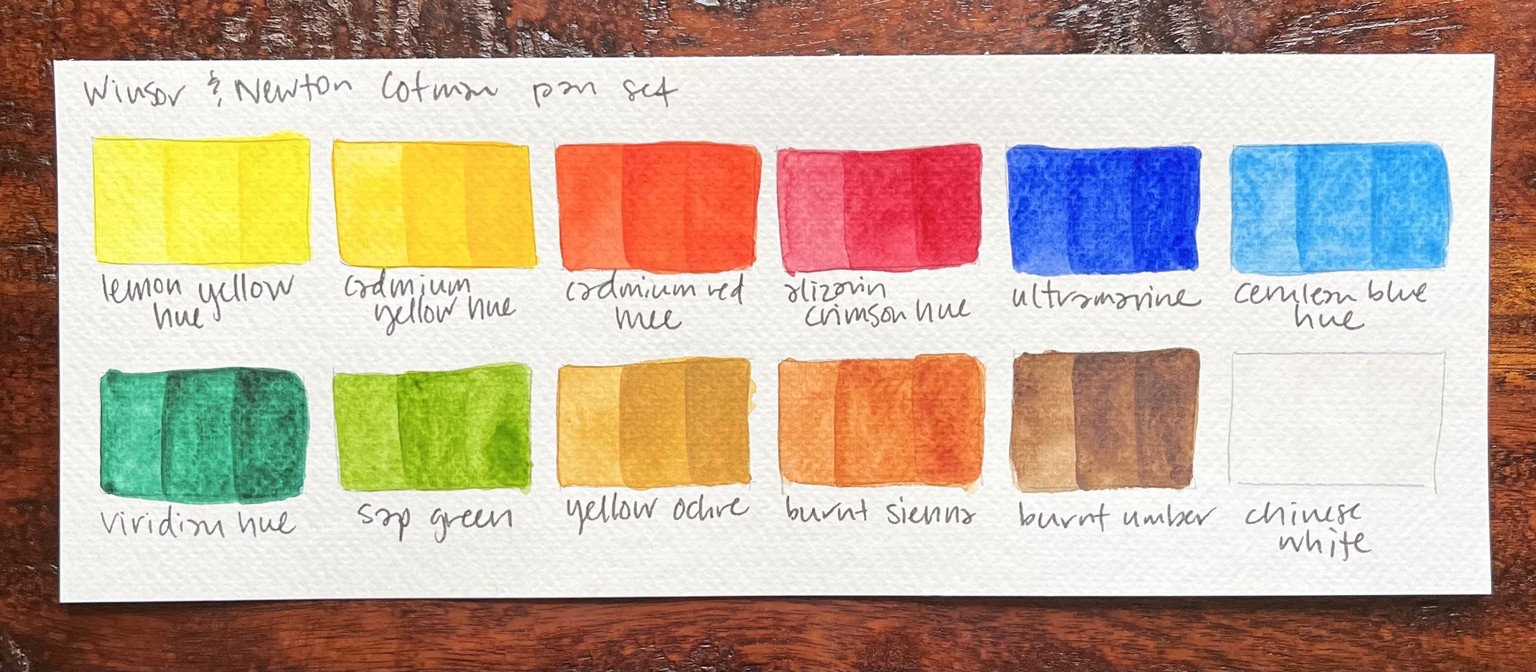 Winsor & Newton Cotman pan set
lemon yellow
hue
cadmium
yellow hue
cadmium red
hue
alizarin
crimson hue
ultramarine
cerulean blue
hue
viridian hue
sap green
yellow ochre
burnt sienna
burnt umber
chinese
white